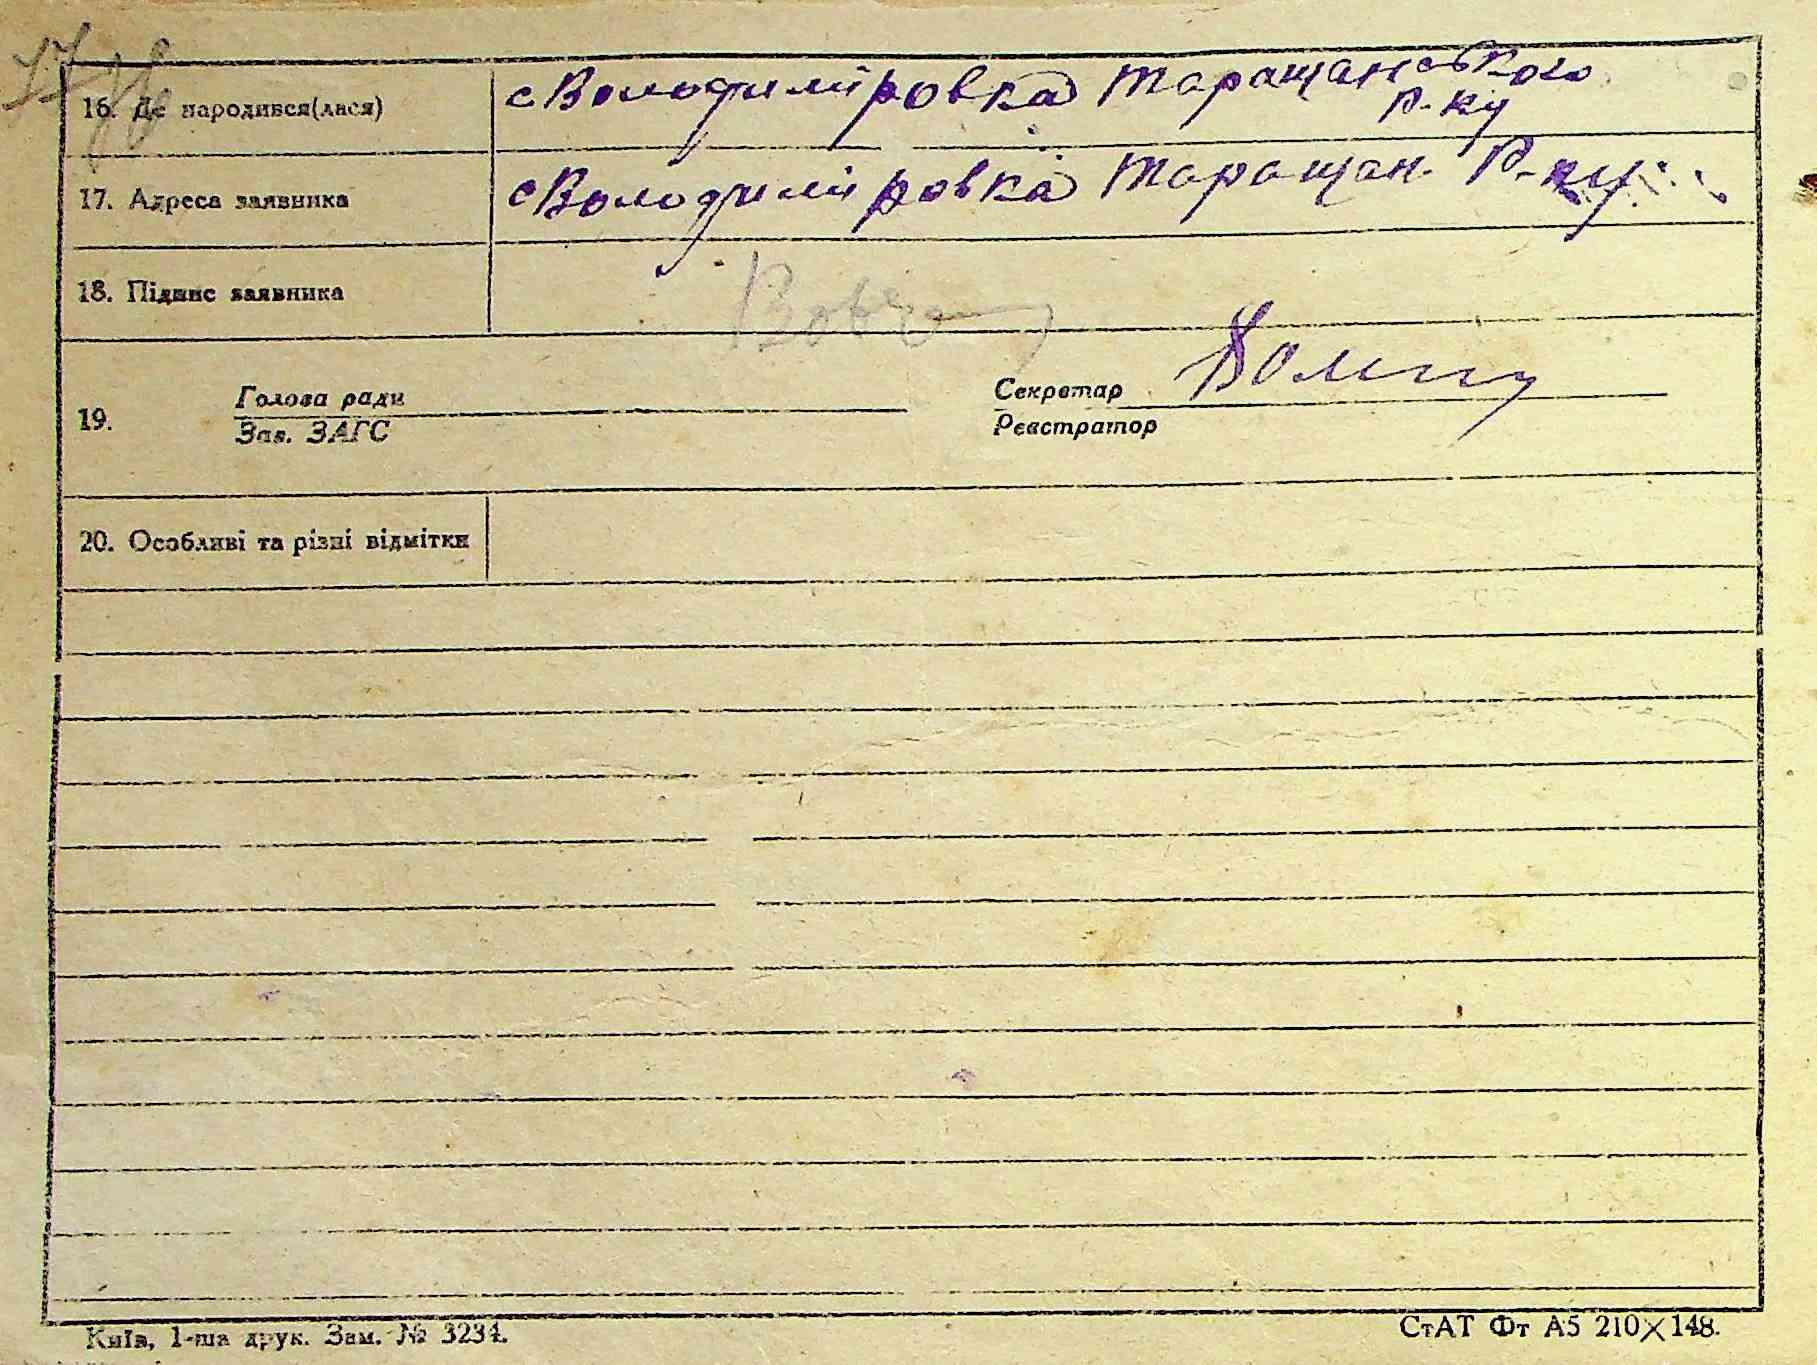 16. Де народився(лася) с Володиміровка Таращанського
р-ку
17. Адреса заявника с Володиміровка Таращан. Р-ку
18. Підпис заявника
19. Голова ради Секретар
Зав. ЗАГС Реєстратор
20. Особливі та різні відмітки
Київ, 1-ша друк. Зам. № 3234. СтАТ Фт А5 210×148.